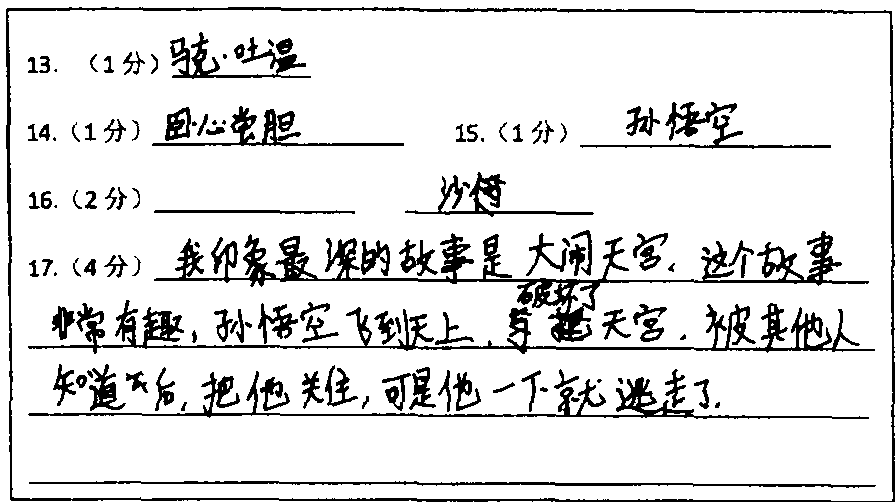 13. （1分）马克·吐温
14.（1分）卧心尝胆 15.（1分）孙悟空
16.（2分） 沙僧
17.（4分）我印象最深的故事是 大闹天宫. 这个故事
非常有趣, 孙悟空飞到天上, 破坏了天宫. 被其他人
知道以后, 把他关住, 可是他一下就逃走了.